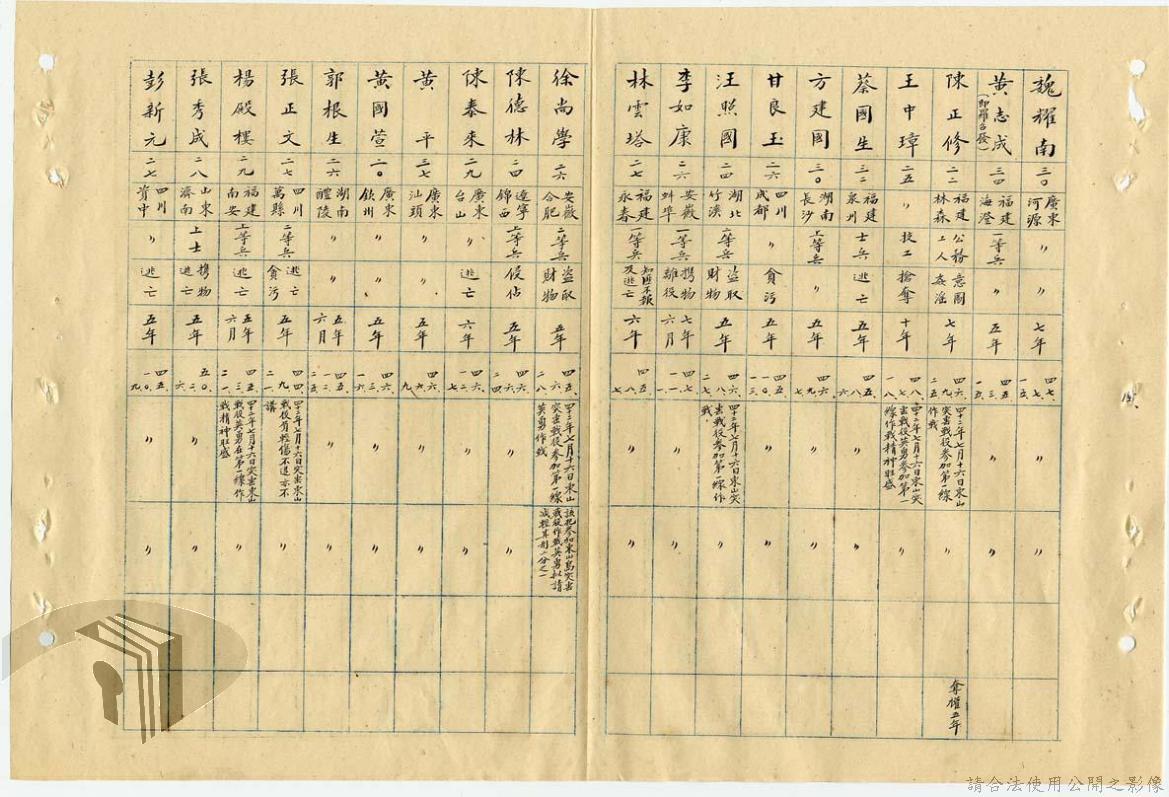 魏耀南 三〇 廣東河源 〃 〃 七年 四七、七、一五、 〃 〃
黃志成(即羅名發) 三四 福建海澄 一等兵 〃 五年 〃 〃
陳正修 二二 福建林森 公務工人 意圖姦淫 七年 四九、七、二五、 四十二年七月十六日東山突击战役参加第一線作战 〃 奪權五年
王中璋 二五 〃 技工 搶奪 十年 四八、七、一八、 四十二年七月十六日東山突击战役英勇参加第一線作战精神旺盛 〃
蔡國生 三二 福建泉州 士兵 逃亡 五年 〃 〃
方建國 三〇 湖南長沙 上等兵 〃 五年 〃 〃
甘良玉 二六 四川成都 〃 貪污 五年 〃 〃
汪照國 二四 湖北竹溪 二等兵 盜取財物 五年 四六、八、二七、 四十二年七月十六日東山突击战役参加第一線作战 〃
李如康 二六 安徽蚌埠 一等兵 攜物離役 七年六月 四七、一一、一、 〃 〃
林雲塔 二七 福建永春 一等兵 知匪不報及逃亡 六年 四五、八、七、 〃 〃
徐尚學 二六 安徽合肥 二等兵 盜取財物 五年 四五、六、二八、 四十二年七月十六日東山突击战役参加第一線英勇作战 該犯参加東山島突击战役作战英勇拟請減輕其刑二分之一
陳德林 二四 遼寧錦西 上等兵 侵佔 五年 四六、六、二四、 〃 〃
陳泰來 二九 廣東台山 〃 逃亡 六年 四六、一二、七、 〃 〃
黃平 三七 廣東汕頭 〃 〃 五年 四六、六、九、 〃 〃
黃國萱 二〇 廣東欽州 〃 〃 五年 四六、三、一六、 〃 〃
郭根生 二六 湖南醴陵 〃 〃 五年六月 四五、一二、二五、 〃 〃
張正文 二七 四川萬縣 二等兵 逃亡貪污 五年 四四、九、二一、 四十二年七月十六日突击東山战役負輕傷不退亦不講 〃
楊殿樓 二九 福建南安 上等兵 逃亡 五年六月 四五、三、二一、 四十二年七月十六日突击東山战役英勇在第一線作战精神旺盛 〃
張秀成 二八 山東濟南 上士 攜物逃亡 五年 五〇、二、六、 〃 〃
彭新元 二七 四川資中 〃 逃亡 五年 四五、一〇、一九、 〃 〃
請合法使用公開之影像